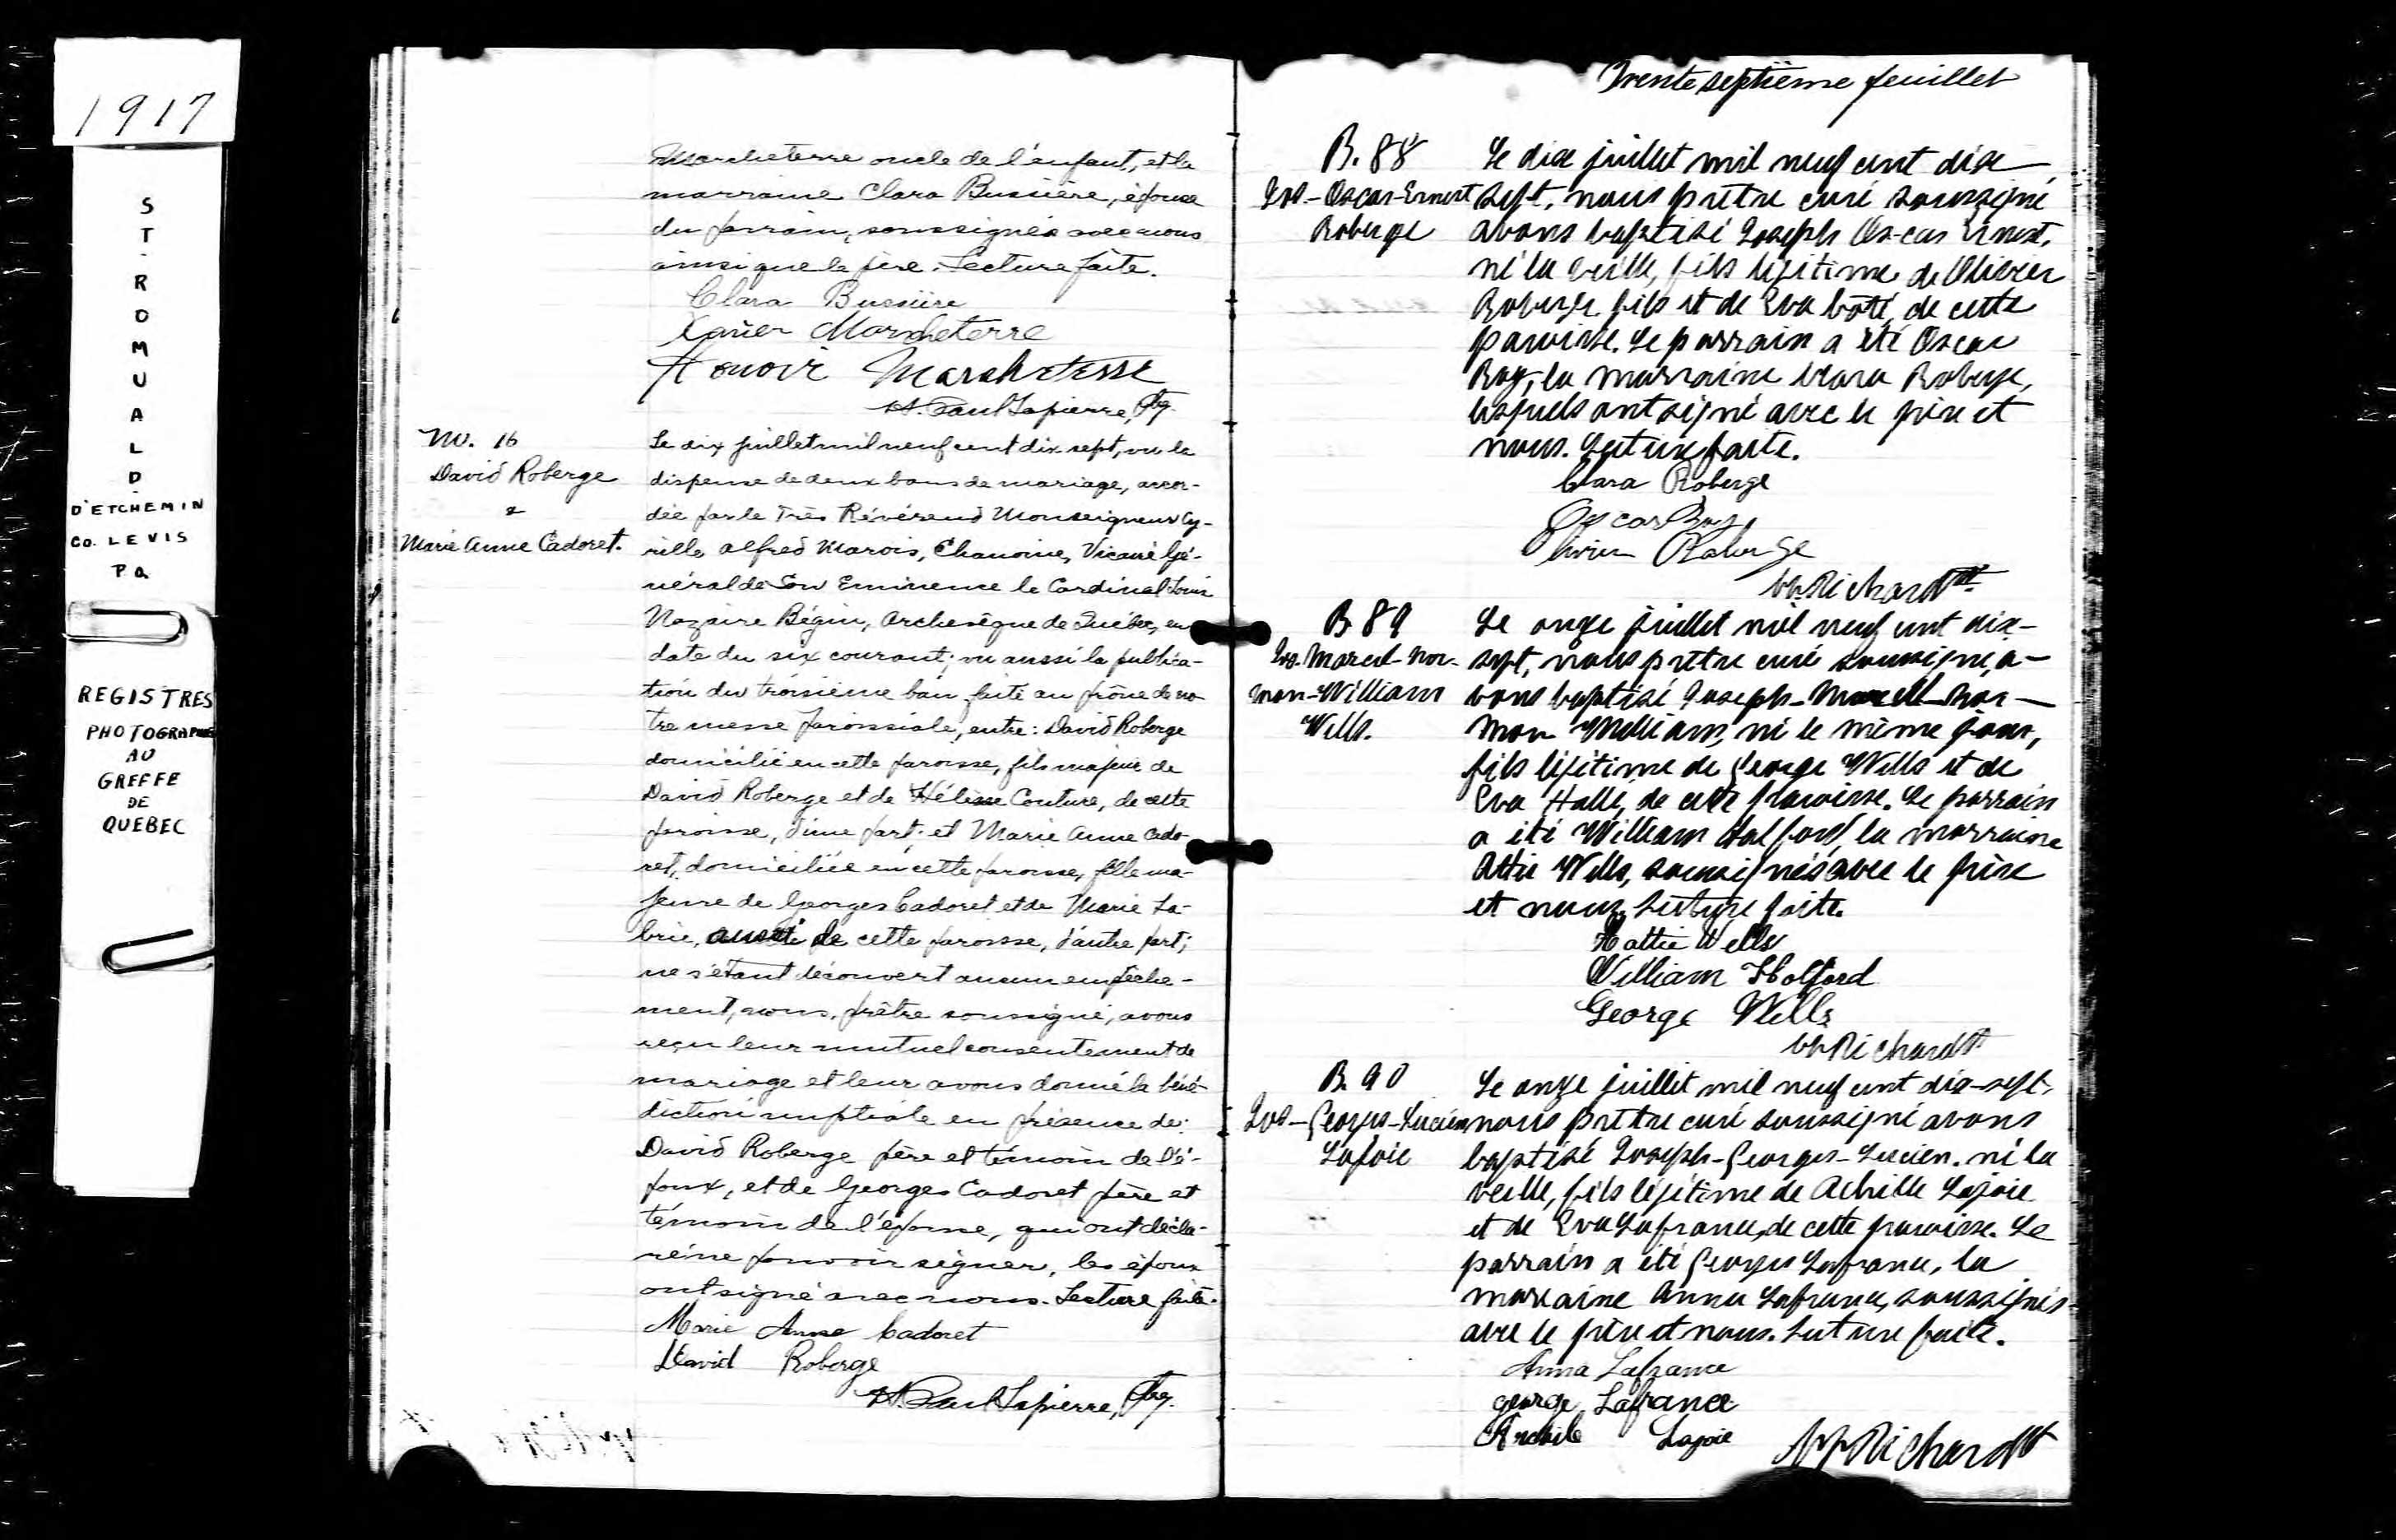 1917
ST-ROMUALD
D'ETCHEMIN
Co. LEVIS
P.Q.
REGISTRES
PHOTOGRAPHIÉS
AU
GREFFE
DE
QUEBEC
Marcheterre oncle de l'enfant, et la
marraine Clara Bussière, épouse
du parrain, soussignés avec nous
ainsi que le père. Lecture faite.
Clara Bussière
Xavier Marcheterre
Honoir Marcheterre
H. Paul Lapierre, Ptre.
M. 16
David Roberge
&
Marie Anne Cadoret.
Le dix juillet mil neuf cent dix sept, vu la
dispense de deux bans de mariage, accor-
dée par le Très Révérend Monseigneur Cy-
rille Alfred Marois, Chanoine, Vicaire Gé-
néral de Son Eminence le Cardinal Louis
Nazaire Bégin, Archevêque de Québec, en
date du six courant; vu aussi la publica-
tion du troisième ban faite au prône de no-
tre messe paroissiale, entre: David Roberge
domicilié en cette paroisse, fils majeur de
David Roberge et de Hélène Couture, de cette
paroisse, d'une part; et Marie Anne Cado-
ret, domiciliée en cette paroisse, fille ma-
jeure de Georges Cadoret et de Marie La-
brie, aussi de cette paroisse, d'autre part;
ne s'étant découvert aucun empêche-
ment, nous, prêtre soussigné, avons
reçu leur mutuel consentement de
mariage et leur avons donné la béné-
diction nuptiale en présence de:
David Roberge père et témoin de l'é-
poux, et de Georges Cadoret père et
témoin de l'épouse, qui ont décla-
ré ne pouvoir signer, les époux
ont signé avec nous. Lecture faite.
Marie Anne Cadoret
David Roberge
H. Paul Lapierre, Ptre.
Trente septième feuillet
B. 88
Jos.-Oscar-Ernest
Roberge
Le dix juillet mil neuf cent dix
sept, nous prêtre curé soussigné
avons baptisé Joseph Oscar Ernest,
né la veille, fils légitime de Olivier
Roberge fils et de Eva Côté, de cette
paroisse. Le parrain a été Oscar
Roy, la marraine Clara Roberge,
lesquels ont signé avec le père et
nous. Lecture faite.
Clara Roberge
Oscar Roy
Olivier Roberge
Ch. Richard Ptre
B 89
Jos. Marcel-Nor-
man-William
Wells.
Le onze juillet mil neuf cent dix-
sept, nous prêtre curé soussigné, a-
vons baptisé Joseph-Marcel-Nor-
man William, né le même jour,
fils légitime de George Wells et de
Eva Hallé, de cette paroisse. Le parrain
a été William Halford, la marraine
Attie Wells, soussignés avec le père
et nous. Lecture faite.
Hattie Wells
William Holford
George Wells
Ch. Richard Ptre
B. 90
Jos-Georges-Lucien
Lajoie
Le onze juillet mil neuf cent dix-sept,
nous prêtre curé soussigné avons
baptisé Joseph-Georges-Lucien, né la
veille, fils légitime de Achille Lajoie
et de Eva Lafrance, de cette paroisse. Le
parrain a été Georges Lafrance, la
marraine Anna Lafrance, soussignés
avec le père et nous. Lecture faite.
Anna Lafrance
george Lafrance
Archile Lajoie
Ch. Richard Ptre